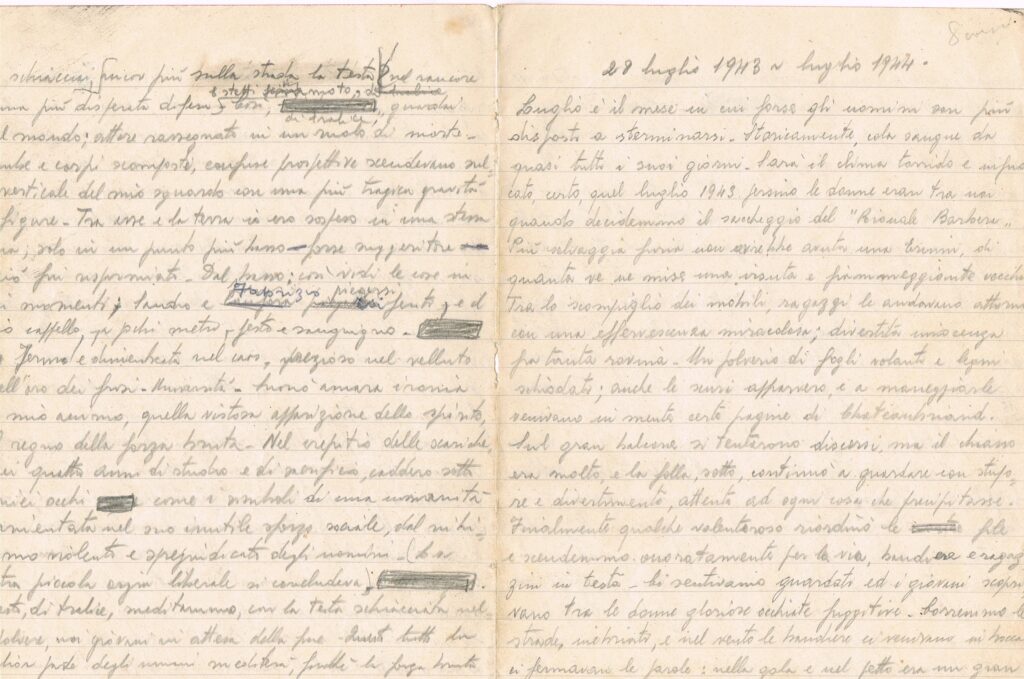 schiacciai, ancor più sulla strada la testa nel rancore
una più disperata difesa, Così, e stetti immoto, guardai
di tralice,
l mondo; attore rassegnato in un moto di morte -
e corpi scomposti, confuse prospettive scendevano sul
verticale del mio sguardo con una più tragica gravità
figure - Tra esse e la terra io ero sospeso in una stessa
; solo in un punto più basso - forse suggeritore
fui risparmiato - Dal basso, così vidi le cose in
i momenti, Sandro e Fabrizio piegarsi, feriti, e il
cappello, a pochi metri, festo e sanguigno -
Fermo e dimenticato nel caso, prezioso nel velluto
ell'oro dei fregi - Università - Suonò amara ironia
mio animo, quella vistosa apparizione dello spirito,
l regno della forza bruta - Nel crepitio delle scariche,
ei quattro anni di studio e di sacrificio, caddero sotto
miei occhi come i simboli di una umanità
nel suo inutile sforzo sociale, dal
violento e spregiudicato degli uomini - (La
tra piccola orgia liberale si concludeva,
, di tralice, meditammo, con la testa schiacciata nel
noi giovani in attesa della fine - Questi tutti da
parte degli umani perchè la forza bruta
28 luglio 1943 ~ luglio 1944.
Luglio è il mese in cui forse gli uomini son più
disposti a sterminarsi - Storicamente, cola sangue da
quasi tutti i suoi giorni - Sarà il clima torrido e infuo
cato, certo, quel luglio 1943 persino le donne eran tra noi
quando decidemmo il saccheggio del "Rionale Barbera"
Più selvaggia furia non avrebbe avuta una Erinni, di
quanta ve ne mise una irsuta e fiammeggiante vecchia
Tra lo scompiglio dei mobili, ragazzi le andavano attorno
con una effervescenza miracolosa; divertita innocenza
fra tanta rovina - Un polverio di fogli volanti e legni
schiodati; anche le scuri apparvero, e a maneggiarle
venivano in mente certe pagine di Chateaubriand.
Sul gran balcone si tentarono discorsi, ma il chiasso
era molto, e la folla, sotto, continuò a guardare con stupo-
re e divertimento, attenta ad ogni cosa che precipitasse.
Finalmente qualche volenteroso riordinò le file
e scendemmo onoratamente per la via, bandiere e ragaz
zini in testa - Ci sentivamo guardati ed i giovani scopri
vano tra le donne gloriose occhiate fuggitive - Corremmo le
strade, inebriati, e nel vento le bandiere ci venivano in bocca
ci fermavan le parole: nella gola e nel petto era un gran